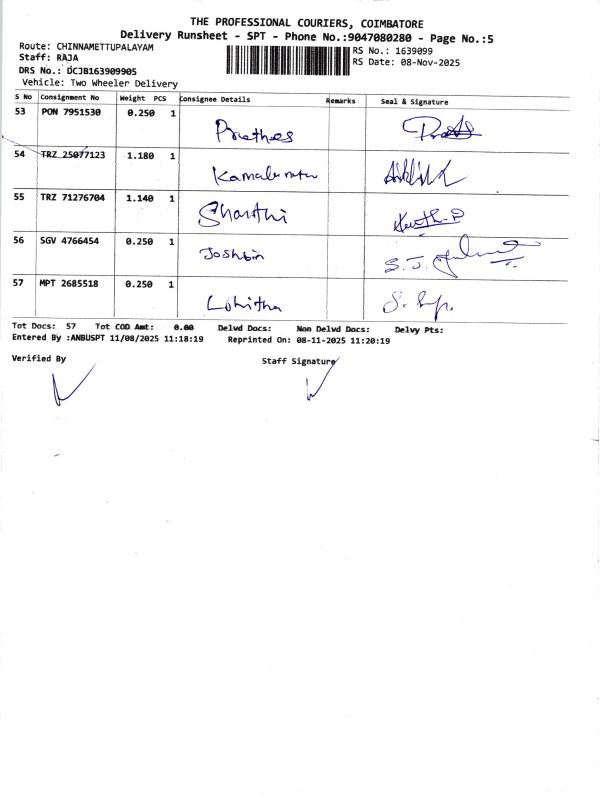 THE PROFESSIONAL COURIERS, COIMBATORE
Delivery Runsheet - SPT - Phone No.:9047080280 - Page No.:5
Route: CHINNAMETTUPALAYAM
Staff: RAJA
DRS No.: DCJB163909905
Vehicle: Two Wheeler Delivery
RS No.: 1639099
RS Date: 08-Nov-2025
S No Consignment No Weight PCS Consignee Details Remarks Seal & Signature
53 PON 7951530 0.250 1 Prethes
54 TRZ 25077123 1.180 1
55 TRZ 71276704 1.140 1 Sharthi
56 SGV 4766454 0.250 1 Joshbin
57 MPT 2685518 0.250 1 Lohitha
Tot Docs: 57 Tot COD Amt: 0.00 Delvd Docs: Non Delvd Docs: Delvy Pts:
Entered By :ANBUSPT 11/08/2025 11:18:19 Reprinted On: 08-11-2025 11:20:19
Verified By Staff Signature